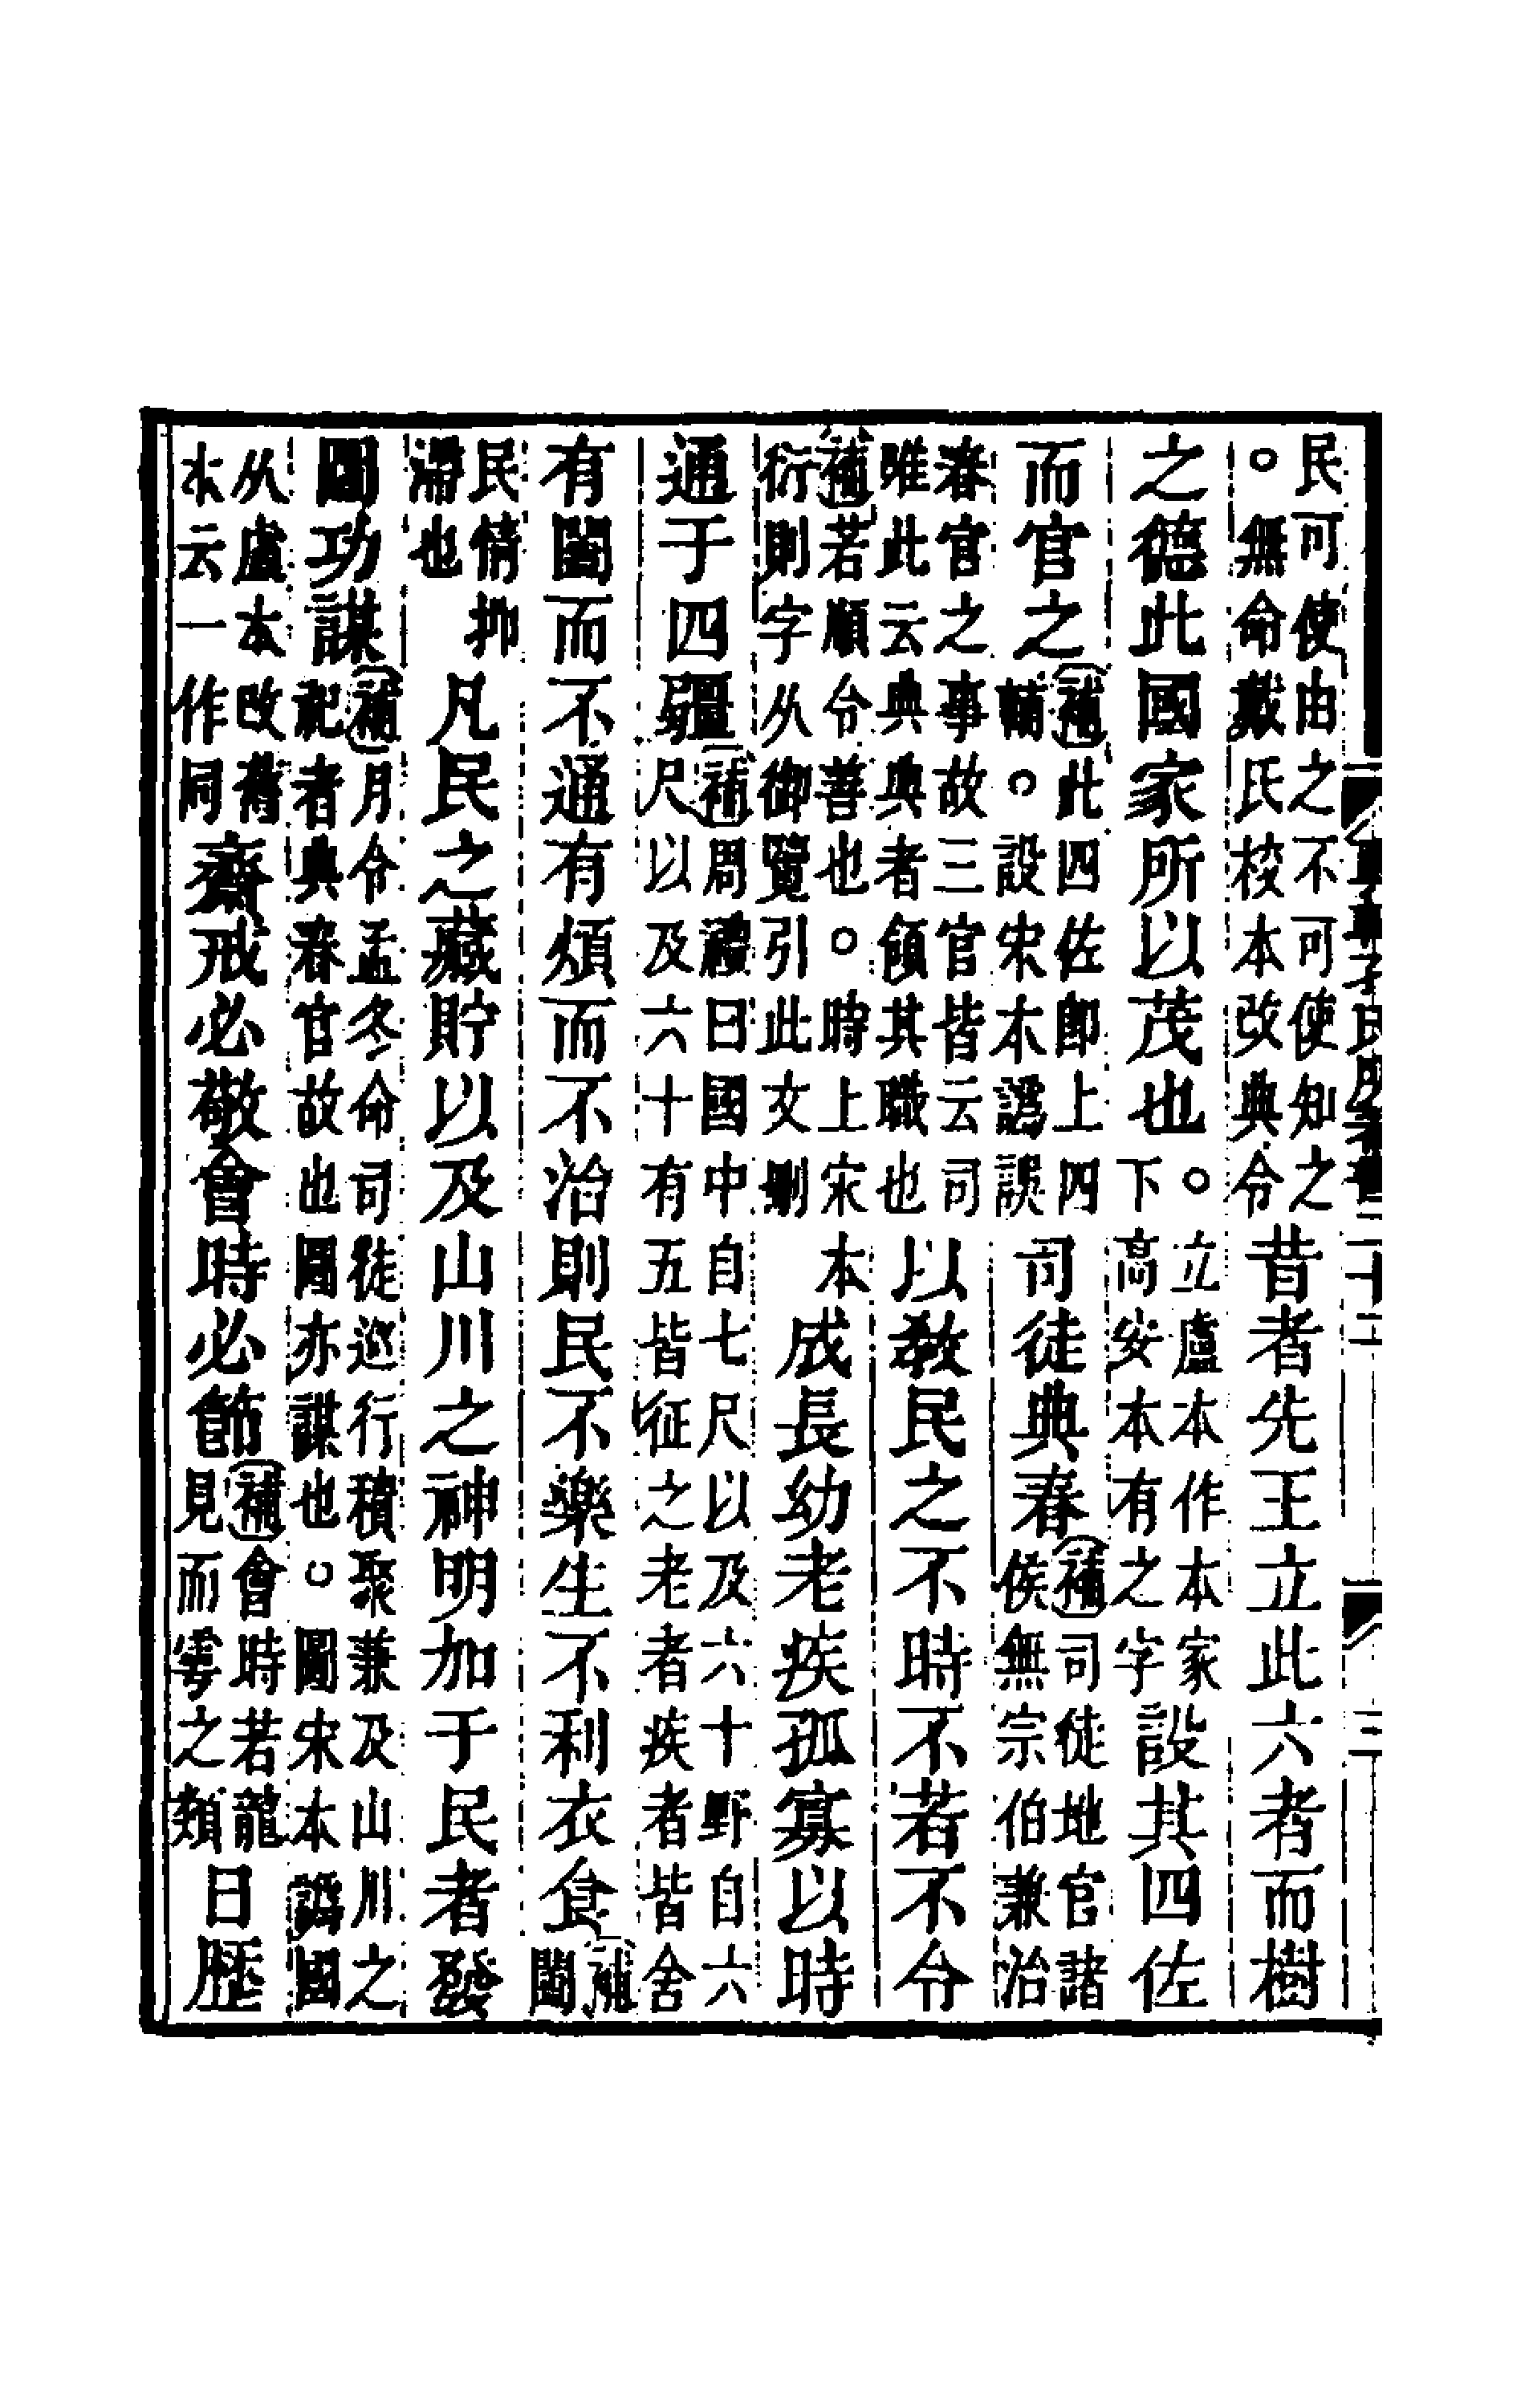 民可使由之不可使知之。無命戴氏校本改典令昔者先王立此六者而樹
之德此國家所以茂也。立盧本作本家下高安本有之字設其四佐
而官之補此四佐即上四輔。設宋本譌誤司徒典春補司徒地官諸侯無宗伯兼治
春官之事故三官皆云司唯此云典典者領其職也以教民之不時不若不令
補若順令善也。時上宋本衍則字从御覽引此文刪成長幼老疾孤寡以時
通于四疆補周禮曰國中自七尺以及六十野自六尺以及六十有五皆征之老者疾者皆舍
有闔而不通有煩而不治則民不樂生不利衣食補闔
民情抑滯也凡民之藏貯以及山川之神明加于民者發
圖功謀補月令孟冬命司徒巡行積聚兼及山川之祀者典春官故也圖亦謀也。圖宋本譌國
从盧本改舊本云一作同齋戒必敬會時必節補會時若龍見而雩之類日歷
三